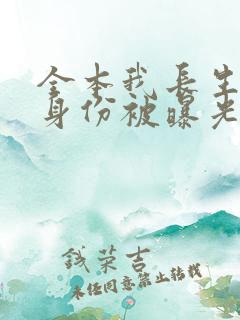 全本我長生
身份被曝光
錢榮吉
未經同意禁止轉載